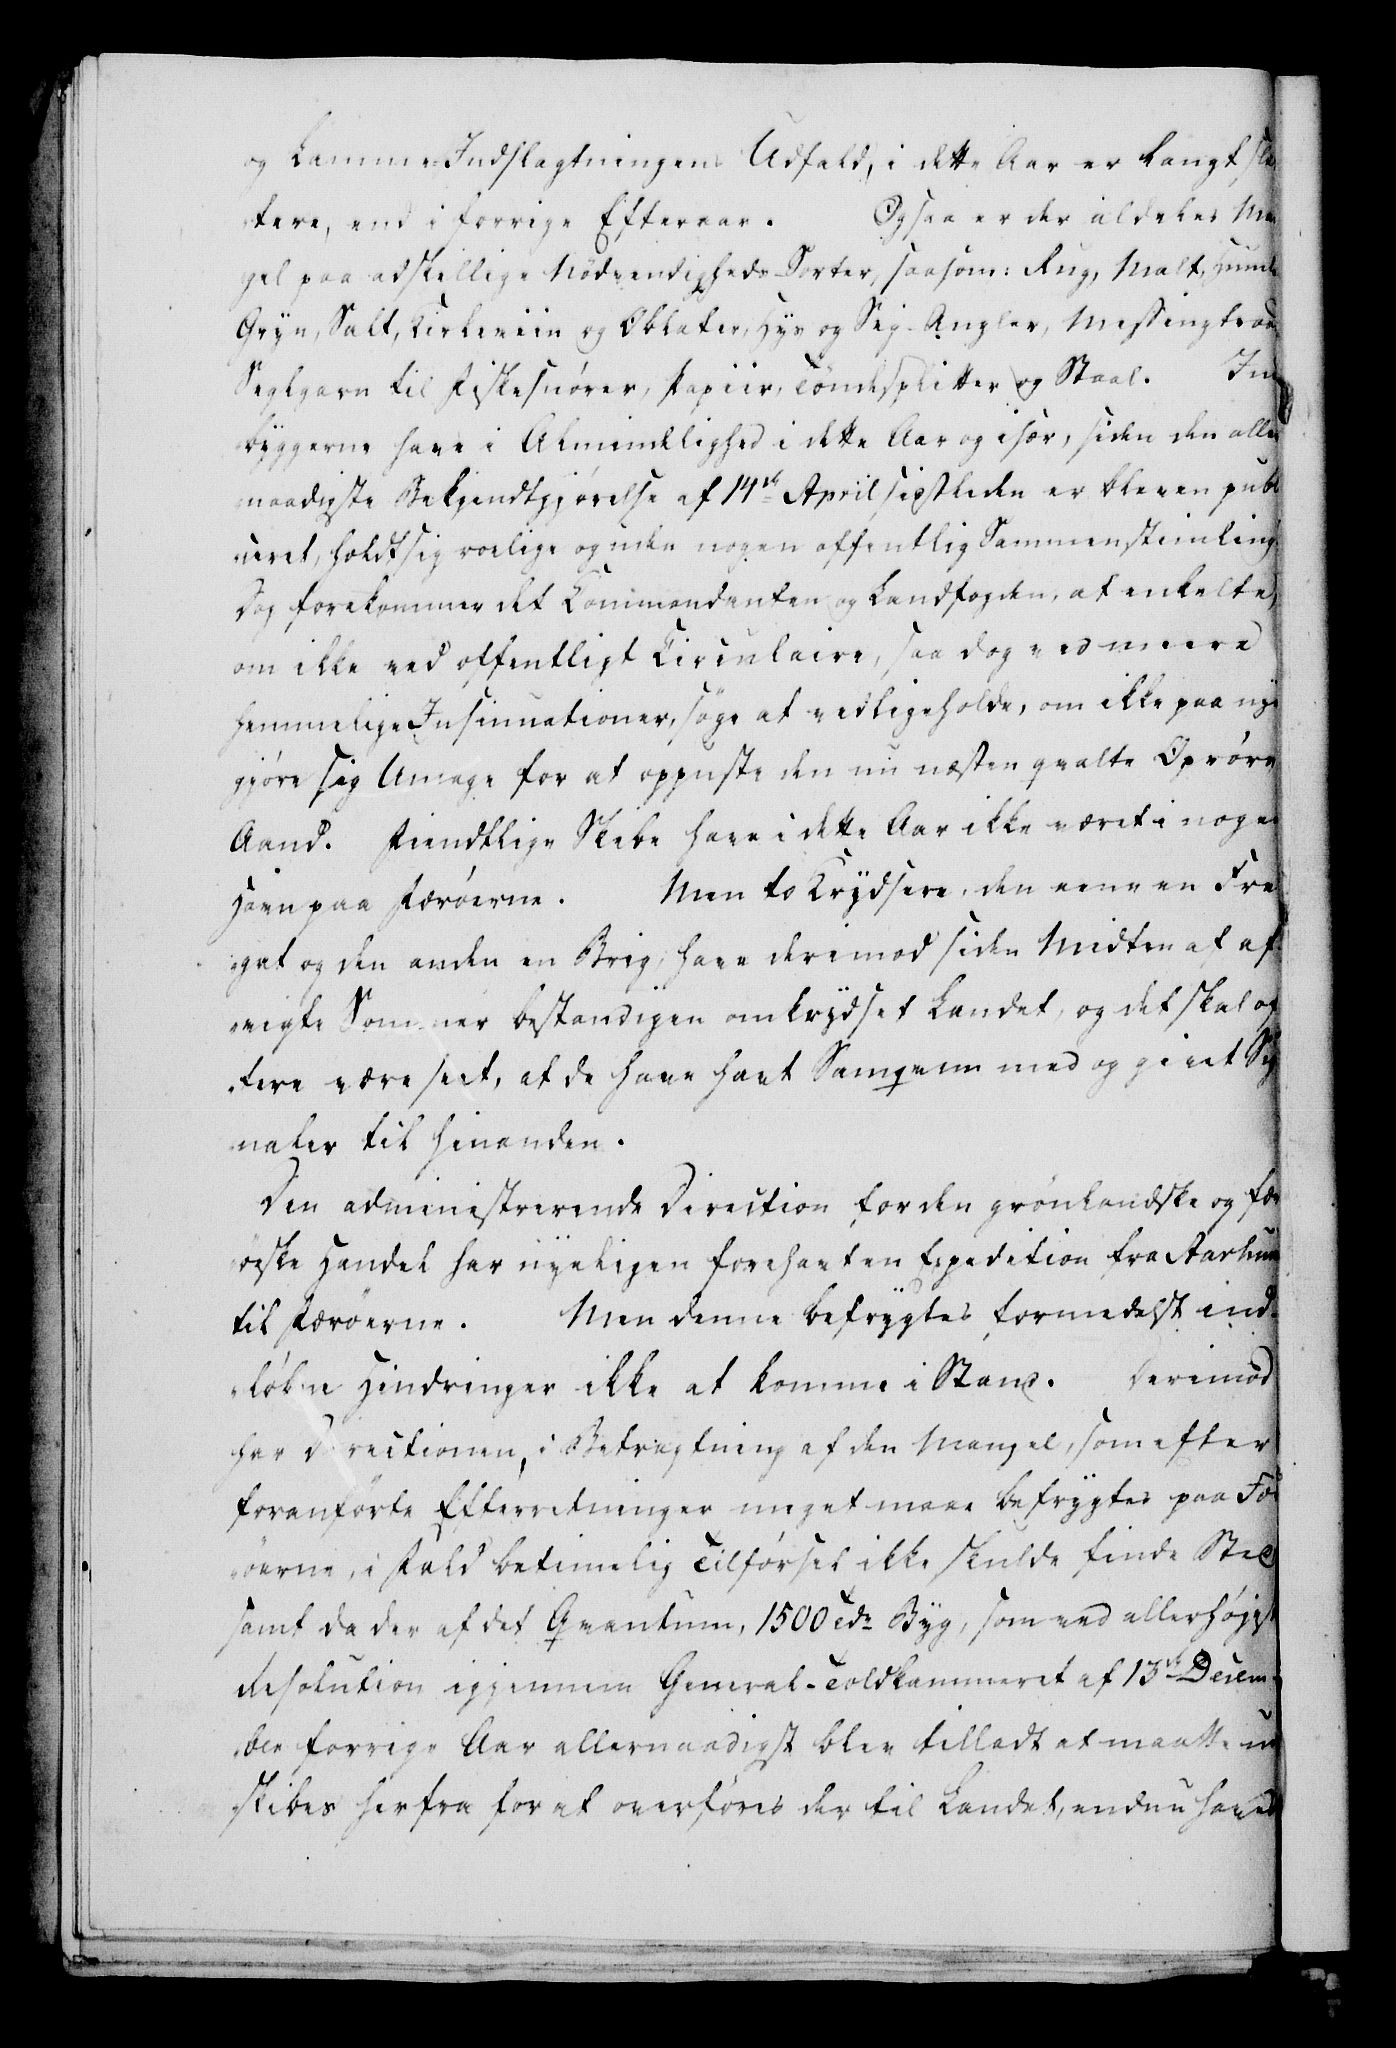 og Lamme-Indslagtningens Udfald, i dette Aar er langt sle
tere, end i forrige Efteraar. Ogsaa er der aldeles Man
gel paa adskellige Nödvendigheds-Sorter, saasom: Rug, Malt, Humle
Gryn, Salt, Kirkeviin og Oblater, Hys og Sej-Angler, Messingtraad
Seglgarn til Fiskesnörer, Papiir, Töndesplitter og Staal. Ind
byggerne have i Almindelighed i dette Aar og især, siden den aller
naadigste Bekjendtgjörelse af 14de April sidstleden er bleven publ
ceret, holdt sig roelige og uden nogen offentlig Sammenstimling.
Dog forekommer det Commandanten og Landfogden, at enkelte,
om ikke ved offentligt Circulaire, saa dog ved meere
hemmelige Insinuationer, söge at vedligeholde, om ikke paa nye
gjöre sig Umage for at oppuste den nu næsten qvalte Oprörs
Aand. Fiendtlige Skibe have i dette Aar ikke været i nogen
Havn paa Færöerne. Men to Krydsere, den eene en Fre
gat og den anden en Brig, have derimod siden Midten af af
vigte Sommer bestandigen omkrydset Landet, og det skal of
tere være seet, at de have havt Samqvem med og givet Sig
naler til hinanden.
Den administrerende Direction for den grönlandske og fær
öeske Handel har nyeligen forehavt en Expedition fra Aarhuus
til Færöerne. Men denne befrygtes formedelst ind-
löbne Hindringer ikke at komme i Stand. Derimod
har Directionen, i Betragtning af den Mangel, som efter
foranförte Efterretninger meget maae befrygtes paa Fær
öerne, i Fald betimelig Tilförsel ikke skulde finde Sted
samt da der af det Qvantum, 1500 Tdr Byg, som ved allerhöjest
Resolution igjennem General-Toldkammeret af 13de Decem-
ber forrige Aar allernaadigst blev tilladt at maatte ud
skibes herfra for at overföres der til Landet, endnu haves